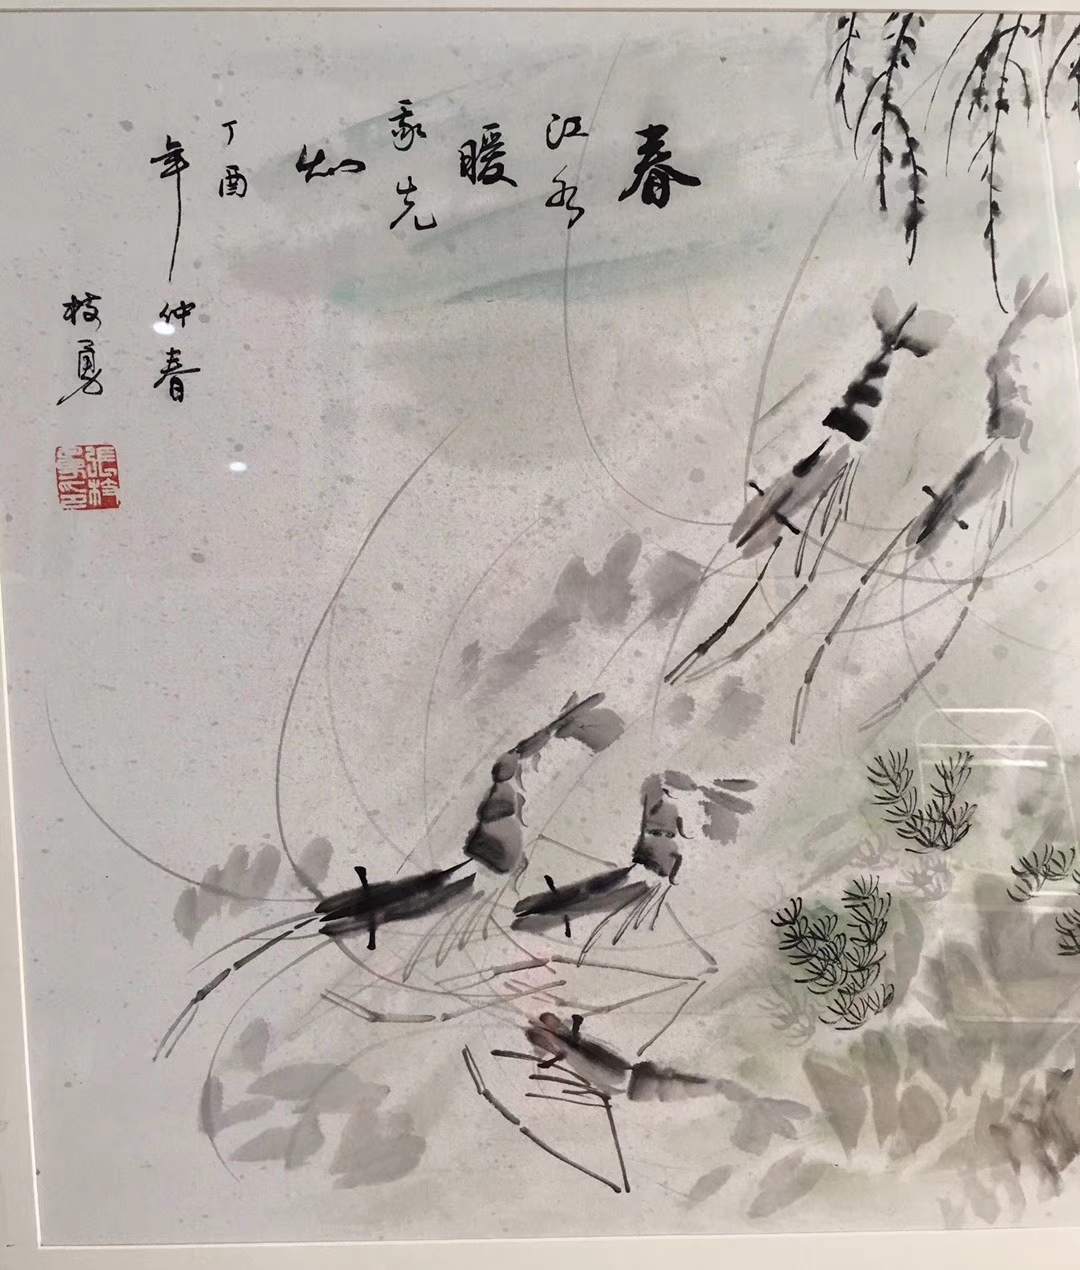 春
江水
暖
我先
知
丁酉
年仲春
枝勇
張枝
勇印